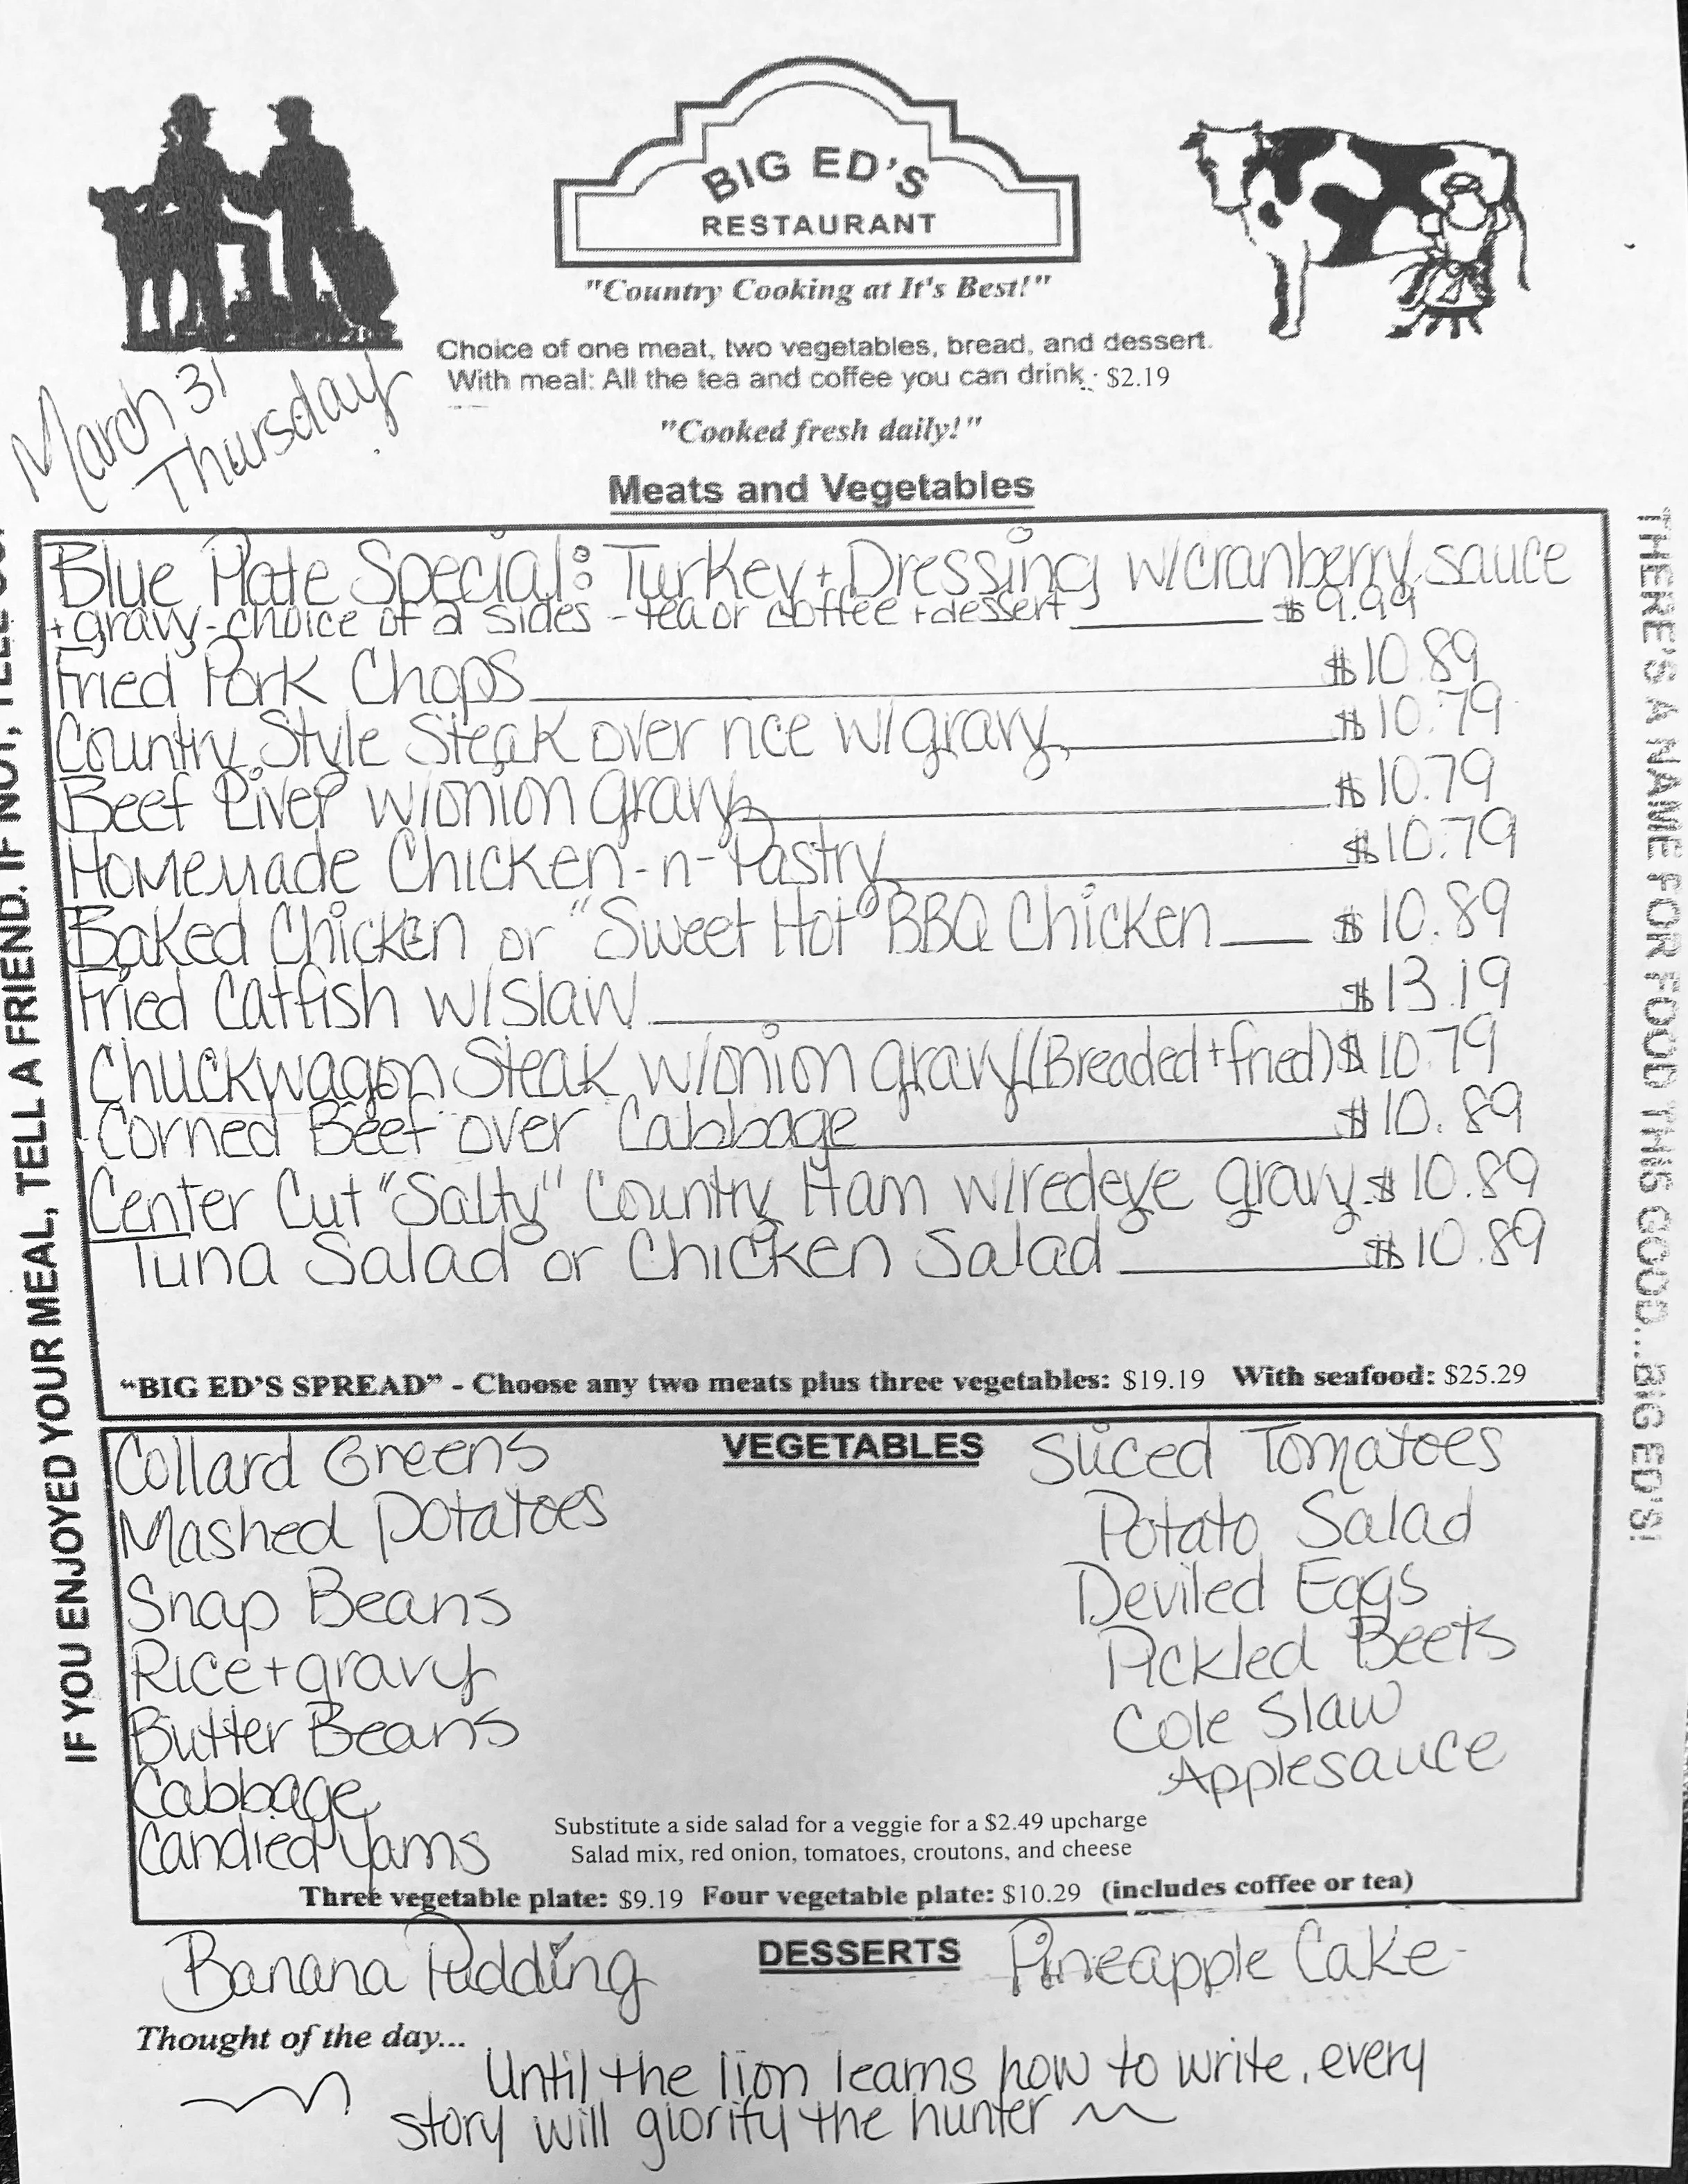 BIG ED'S
RESTAURANT
"Country Cooking at It's Best!"
Choice of one meat, two vegetables, bread, and dessert.
With meal: All the tea and coffee you can drink - $2.19
"Cooked fresh daily!"
March 31
Thursday
Meats and Vegetables
Blue Plate Special: Turkey + Dressing w/cranberry sauce
+ gravy - choice of 2 sides - tea or coffee + dessert $9.99
Fried Pork Chops $10.89
Country Style Steak over rice w/gravy $10.79
Beef Liver w/onion gravy $10.79
Homemade Chicken-n-Pastry $10.79
Baked Chicken or "Sweet Hot" BBQ Chicken $10.89
Fried Catfish w/slaw $13.19
Chuckwagon Steak w/onion gravy (Breaded + fried) $10.79
Corned Beef over Cabbage $10.89
Center Cut "Salty" Country Ham w/redeye gravy $10.89
Tuna Salad or Chicken Salad $10.89
"BIG ED'S SPREAD" - Choose any two meats plus three vegetables: $19.19 With seafood: $25.29
VEGETABLES
Collard Greens
Mashed Potatoes
Snap Beans
Rice + gravy
Butter Beans
Cabbage
Candied Yams
Sliced Tomatoes
Potato Salad
Deviled Eggs
Pickled Beets
Cole Slaw
Applesauce
Substitute a side salad for a veggie for a $2.49 upcharge
Salad mix, red onion, tomatoes, croutons, and cheese
Three vegetable plate: $9.19 Four vegetable plate: $10.29 (includes coffee or tea)
DESSERTS
Banana Pudding
Pineapple Cake
Thought of the day...
Until the lion learns how to write, every
story will glorify the hunter
IF YOU ENJOYED YOUR MEAL, TELL A FRIEND. IF NOT, TELL
THERE'S A NAME FOR FOOD THIS GOOD...BIG ED'S!